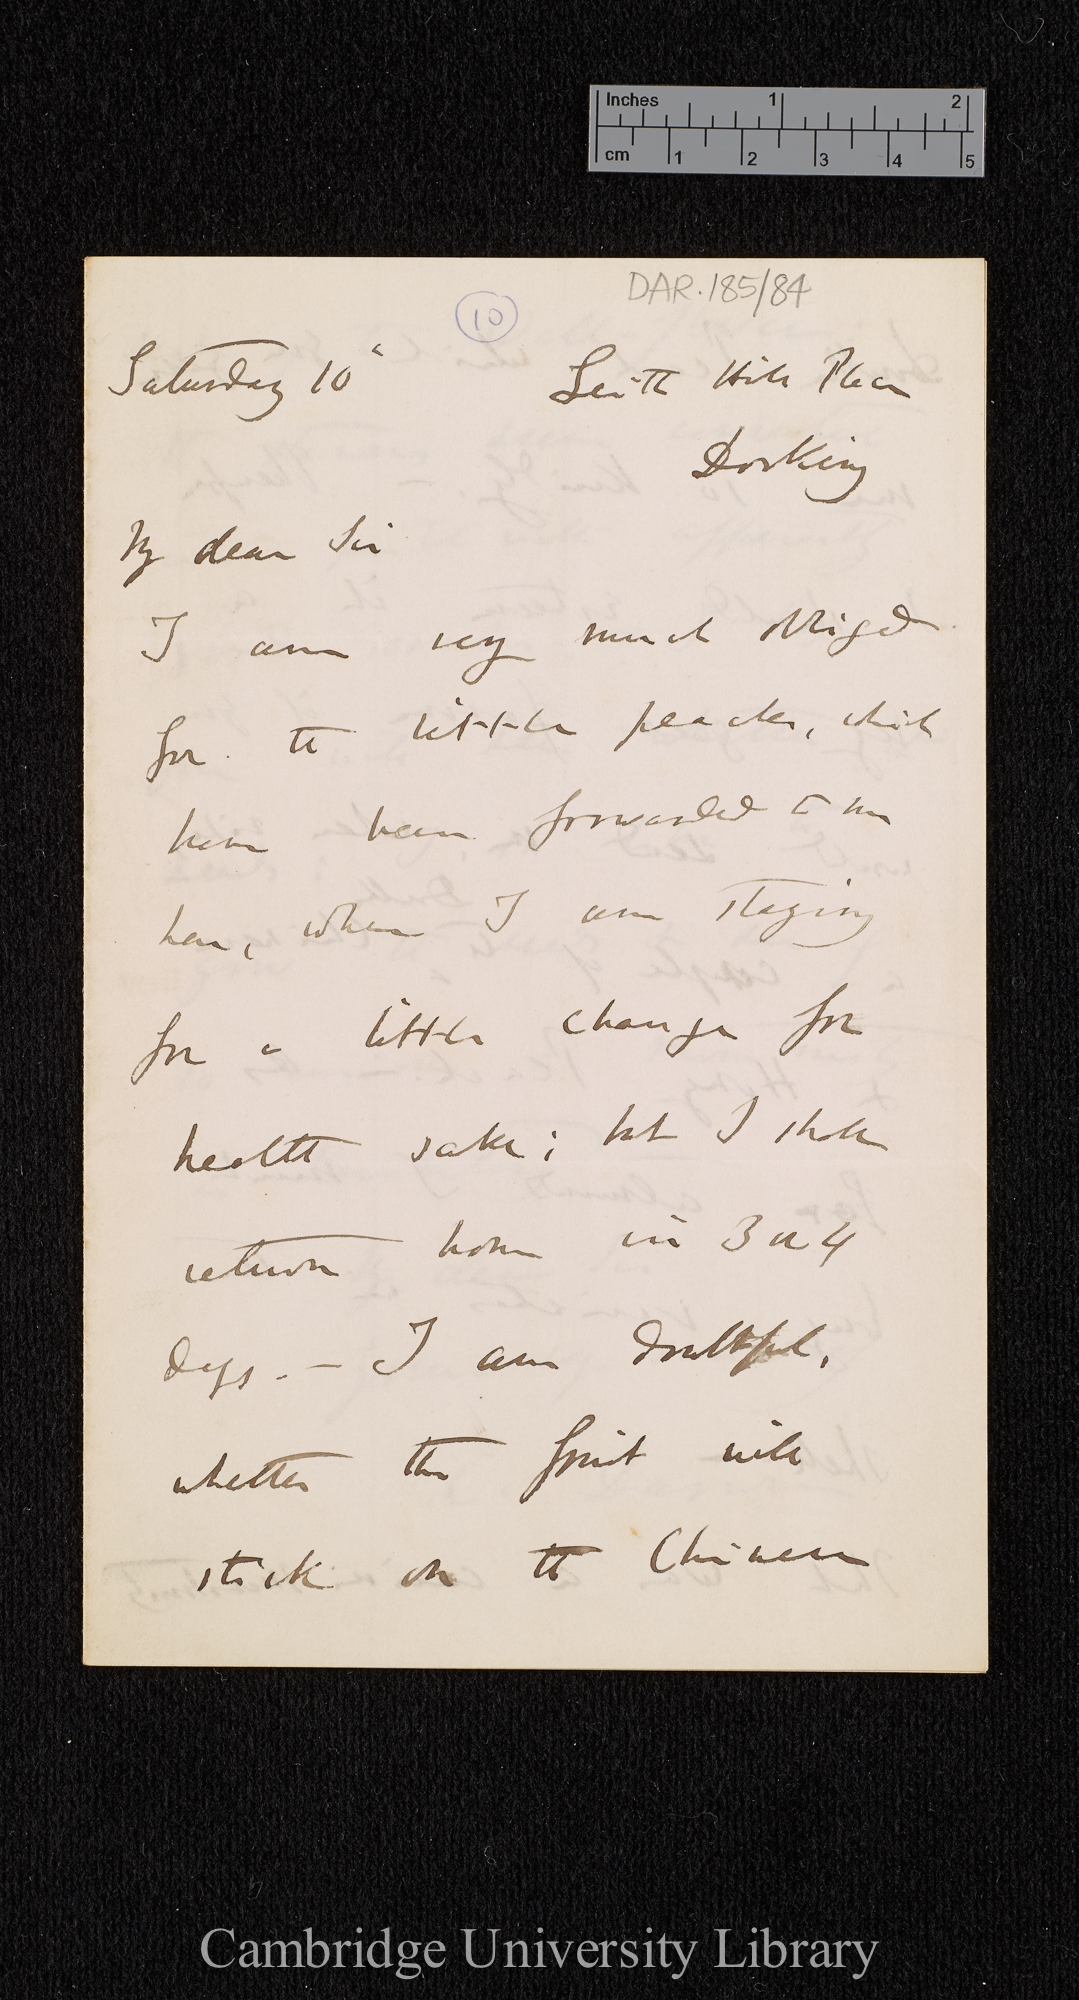 Inches 1 2
cm 1 2 3 4 5
DAR.185/84
10
Saturday 10th
Leith Hill Place
Dorking
My dear Sir
I am very much obliged
for the little peaches, which
have been forwarded to me
here, where I am staying
for a little change for
health sake; but I shall
return home in 3 or 4
days. — I am doubtful,
whether the fruit will
stick on the Chinese
Cambridge University Library